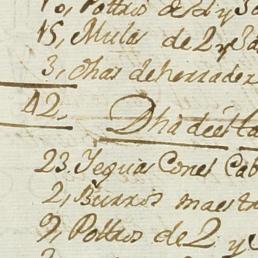 10, Pottros de 2 y 3 a
15, Mulas de 2 y 3 a
3, Dhas de herrader
42,
Dha de esta
23, Yeguas Con el Cab
2, Burros maestr
9, Pottros de 2 y